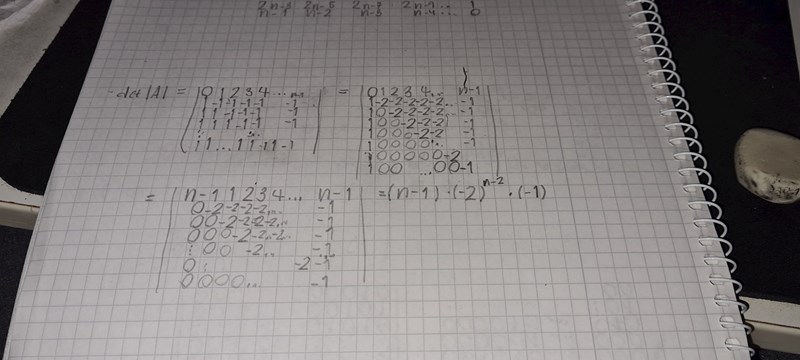 2n-3 2n-5 2n-3 2n-1 ... 1
n-1 n-2 n-3 n-4 ... 0
det |A| = | 0 1 2 3 4 ... = | 0 1 2 3 4 ... n-1 |
1 -1 -1 -1 -1 -1 1 -2 -2 -2 -2 -2 .. -1
1 1 -1 -1 -1 -1 1 0 -2 -2 -2 -2 .. -1
1 1 1 -1 -1 -1 1 0 0 -2 -2 -2 -1
1 0 0 0 -2 -2 -1
1 1 ... 1 1 1 1 -1 1 0 0 0 0 .. -1
1 0 0 0 0 0 -2
1 0 0 ... 0 0 -1
= | n-1 1 2 3 4 ... n-1 | = (n-1) · (-2)^{n-2} · (-1)
0 -2 -2 -2 -2 ... -1
0 0 -2 -2 -2 -2 ... -1
0 0 0 -2 -2 .. -2 .. -1
: 0 0 -2 .. -1
0 : -2 -1
0 0 0 0 .. -1